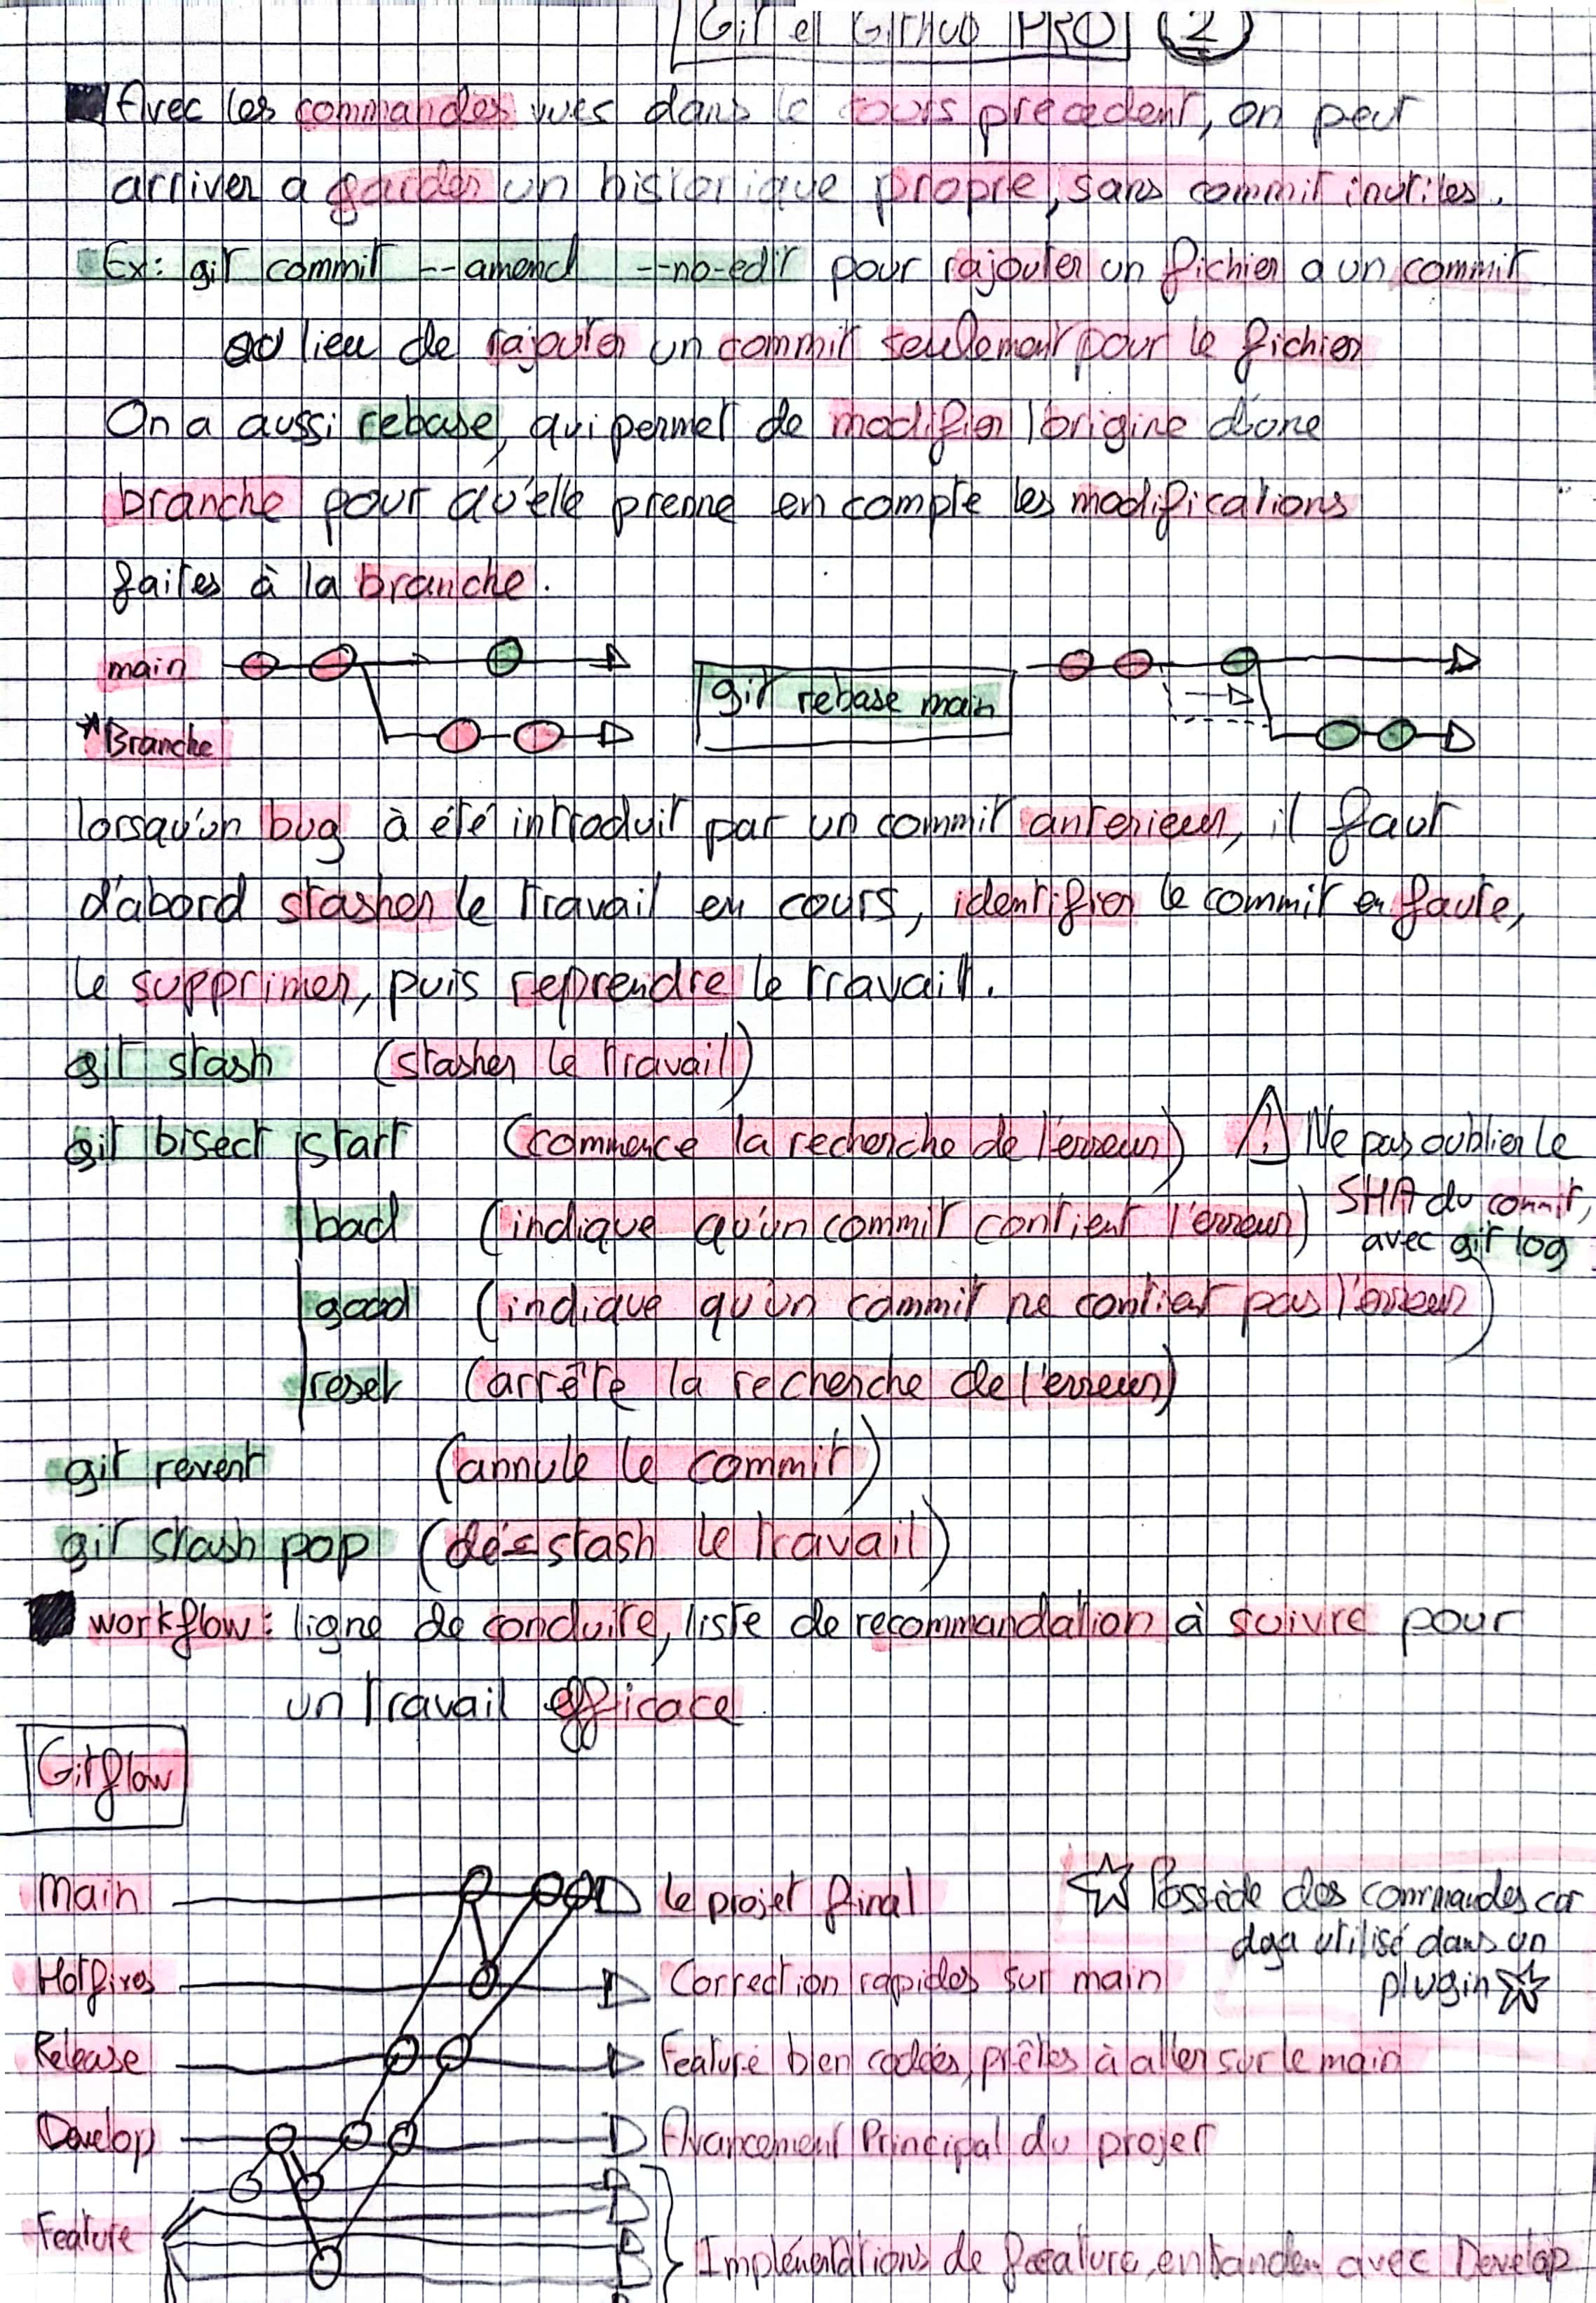 Git et Github PRO 2
Avec les commandes vues dans le cours precedent, on peut
arriver a garder un historique propre, sans commit inutiles.
Ex: git commit --amend --no-edit pour rajouter un fichier a un commit
au lieu de rajouter un commit seulement pour le fichier
On a aussi rebase, qui permet de modifier l'origine d'une
branche pour qu'elle prenne en compte les modifications
faites à la branche.
main
git rebase main
*Branche
lorsqu'un bug à été introduit par un commit anterieur, il faut
d'abord stasher le travail en cours, identifier le commit en faute,
le supprimer, puis reprendre le travail.
git stash (stasher le travail)
git bisect start (commence la recherche de l'erreur) ⚠ Ne pas oublier le
SHA du commit,
bad (indique qu'un commit contient l'erreur)
avec git log
good (indique qu'un commit ne contient pas l'erreur)
reset (arrête la recherche de l'erreur)
git revert (annule le commit)
git stash pop (dé-stash le travail)
workflow: ligne de conduite, liste de recommandation à suivre pour
un travail efficace
Gitflow
Main le projet final
☆ Possède des commandes car
deja utilisé dans un
plugin ☆
Hotfixes Correction rapides sur main
Release Feature bien codées, prêtes à aller sur le main
Develop Avancement Principal du projet
Feature Implémentations de feature, en tandem avec Develop